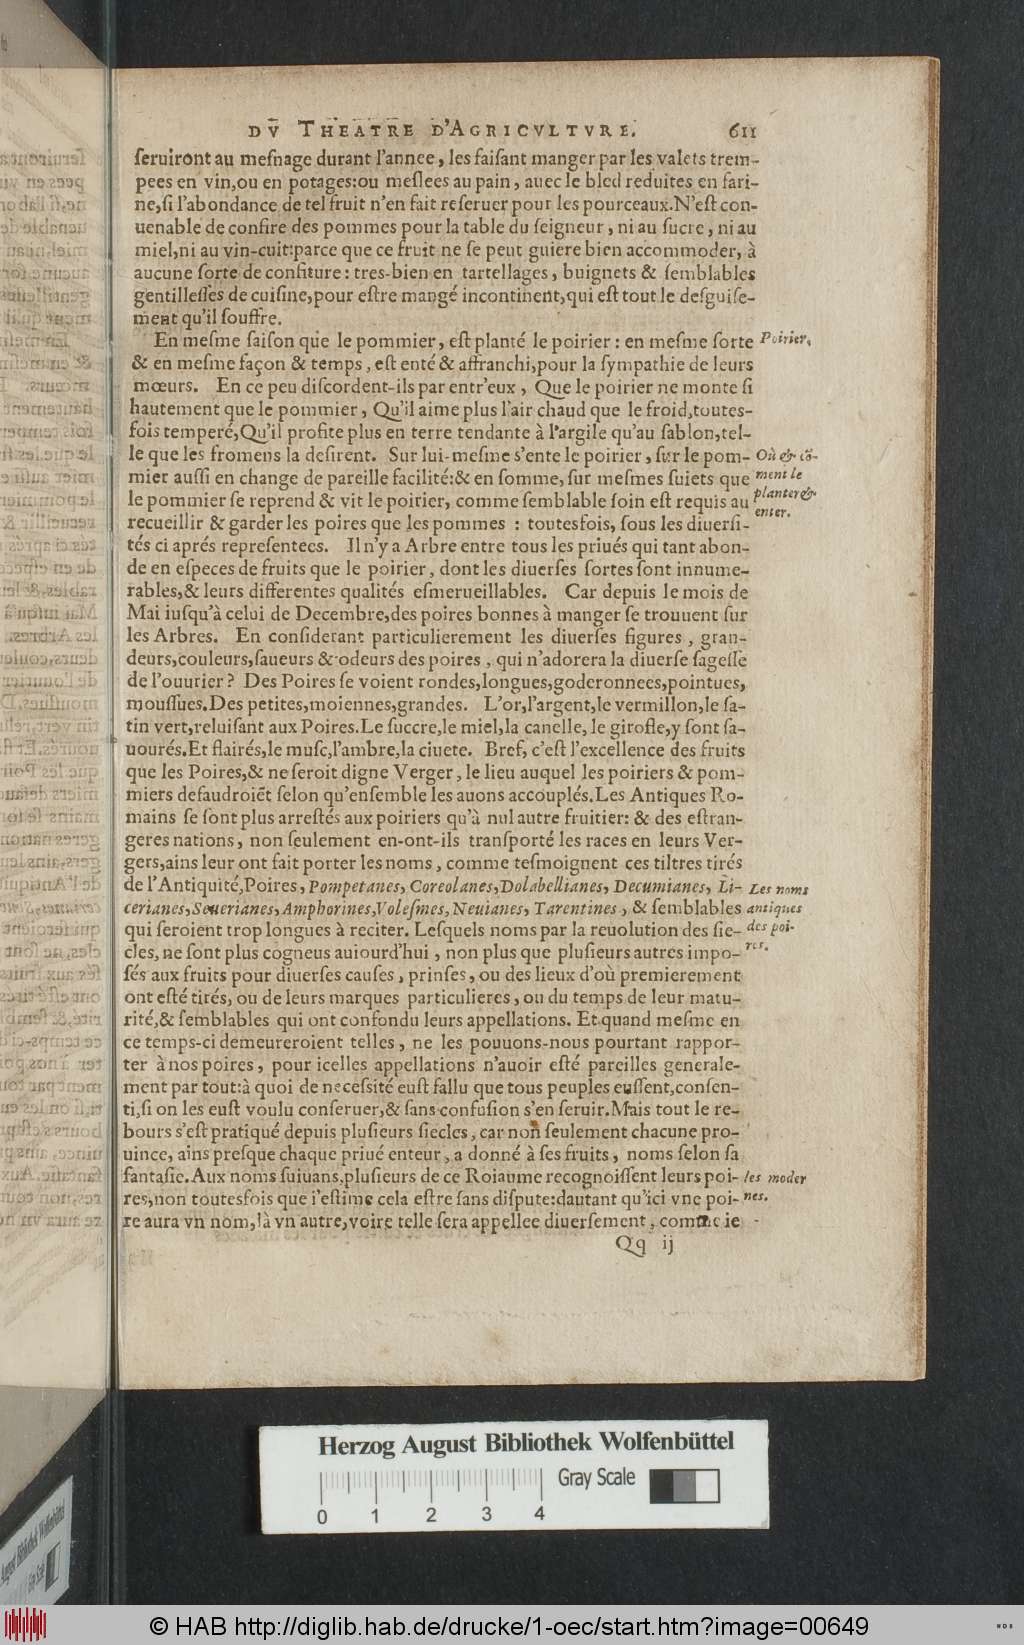 DV THEATRE D'AGRICVLTVRE. 611
ſeruiront au meſnage durant l'annee, les faiſant manger par les valets trem-
pees en vin, ou en potages: ou meſlees au pain, auec le bled reduites en fari-
ne, ſi l'abondance de tel fruit n'en fait reſeruer pour les pourceaux. N'eſt con-
uenable de confire des pommes pour la table du ſeigneur, ni au ſucre, ni au
miel, ni au vin-cuit: parce que ce fruit ne ſe peut guiere bien accommoder, à
aucune ſorte de confiture: tres-bien en tartellages, buignets & ſemblables
gentilleſſes de cuiſine, pour eſtre mangé incontinent, qui eſt tout le deſguiſe-
ment qu'il ſouffre.
En meſme ſaiſon que le pommier, eſt planté le poirier: en meſme ſorte
Poirier.
& en meſme façon & temps, eſt enté & affranchi, pour la ſympathie de leurs
mœurs. En ce peu diſcordent-ils par entr'eux, Que le poirier ne monte ſi
hautement que le pommier, Qu'il aime plus l'air chaud que le froid, toutes-
fois temperé, Qu'il profite plus en terre tendante à l'argile qu'au ſablon, tel-
le que les fromens la deſirent. Sur lui-meſme s'ente le poirier, ſur le pom-
Où & cõ-
mier auſſi en change de pareille facilité: & en ſomme, ſur meſmes ſuiets que
ment le
le pommier ſe reprend & vit le poirier, comme ſemblable ſoin eſt requis au
planter &
enter.
recueillir & garder les poires que les pommes : toutesfois, ſous les diuerſi-
tés ci aprés repreſentees. Il n'y a Arbre entre tous les priués qui tant abon-
de en eſpeces de fruits que le poirier, dont les diuerſes ſortes ſont innume-
rables, & leurs differentes qualités eſmerueillables. Car depuis le mois de
Mai iuſqu'à celui de Decembre, des poires bonnes à manger ſe trouuent ſur
les Arbres. En conſiderant particulierement les diuerſes figures, gran-
deurs, couleurs, ſaueurs & odeurs des poires, qui n'adorera la diuerſe ſageſſe
de l'ouurier? Des Poires ſe voient rondes, longues, goderonnees, pointues,
mouſſues. Des petites, moiennes, grandes. L'or, l'argent, le vermillon, le ſa-
tin vert, reluiſant aux Poires. Le ſuccre, le miel, la canelle, le girofle, y ſont ſa-
uourés. Et flairés, le muſc, l'ambre, la ciuete. Bref, c'eſt l'excellence des fruits
que les Poires, & ne ſeroit digne Verger, le lieu auquel les poiriers & pom-
miers defaudroiẽt ſelon qu'enſemble les auons accouplés. Les Antiques Ro-
mains ſe ſont plus arreſtés aux poiriers qu'à nul autre fruitier: & des eſtran-
geres nations, non ſeulement en-ont-ils tranſporté les races en leurs Ver-
gers, ains leur ont fait porter les noms, comme teſmoignent ces tiltres tirés
de l'Antiquité, Poires, Pompetanes, Coreolanes, Dolabellianes, Decumianes, Li-
Les noms
cerianes, Seuerianes, Amphorines, Voleſmes, Neuianes, Tarentines, & ſemblables
antiques
qui ſeroient trop longues à reciter. Leſquels noms par la reuolution des ſie-
des poi-
cles, ne ſont plus cogneus auiourd'hui, non plus que pluſieurs autres impo-
res.
ſés aux fruits pour diuerſes cauſes, prinſes, ou des lieux d'où premierement
ont eſté tirés, ou de leurs marques particulieres, ou du temps de leur matu-
rité, & ſemblables qui ont confondu leurs appellations. Et quand meſme en
ce temps-ci demeureroient telles, ne les pouuons-nous pourtant rappor-
ter à nos poires, pour icelles appellations n'auoir eſté pareilles generale-
ment par tout: à quoi de neceſſité euſt fallu que tous peuples euſſent, conſen-
ti, ſi on les euſt voulu conſeruer, & ſans confuſion s'en ſeruir. Mais tout le re-
bours s'eſt pratiqué depuis pluſieurs ſiecles, car non ſeulement chacune pro-
uince, ains preſque chaque priué enteur, a donné à ſes fruits, noms ſelon ſa
fantaſie. Aux noms ſuiuans, pluſieurs de ce Roiaume recognoiſſent leurs poi-
les moder
res, non toutesfois que i'eſtime cela eſtre ſans diſpute: dautant qu'ici vne poi-
nes.
re aura vn nom, là vn autre, voire telle ſera appellee diuerſement, comme ie
Qq ij
Herzog August Bibliothek Wolfenbüttel
Gray Scale
0 1 2 3 4
© HAB http://diglib.hab.de/drucke/1-oec/start.htm?image=00649